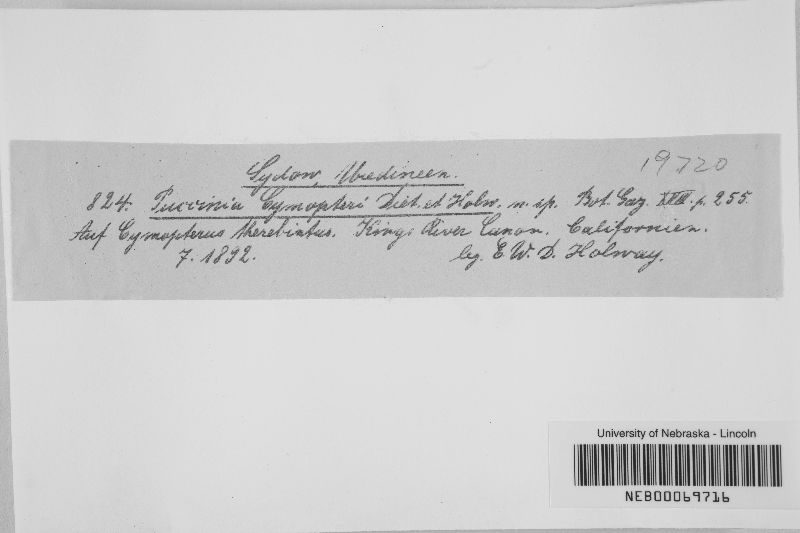 Sydow, Uredineen.
19720
824. Puccinia Cymopteri Diet. et Holw. n. sp. Bot. Gaz. XVIII. p. 255.
Auf Cymopterus therebintus. Kings River Canon. Californien.
7. 1892. leg. E. W. D. Holway.
University of Nebraska - Lincoln
NEB00069716